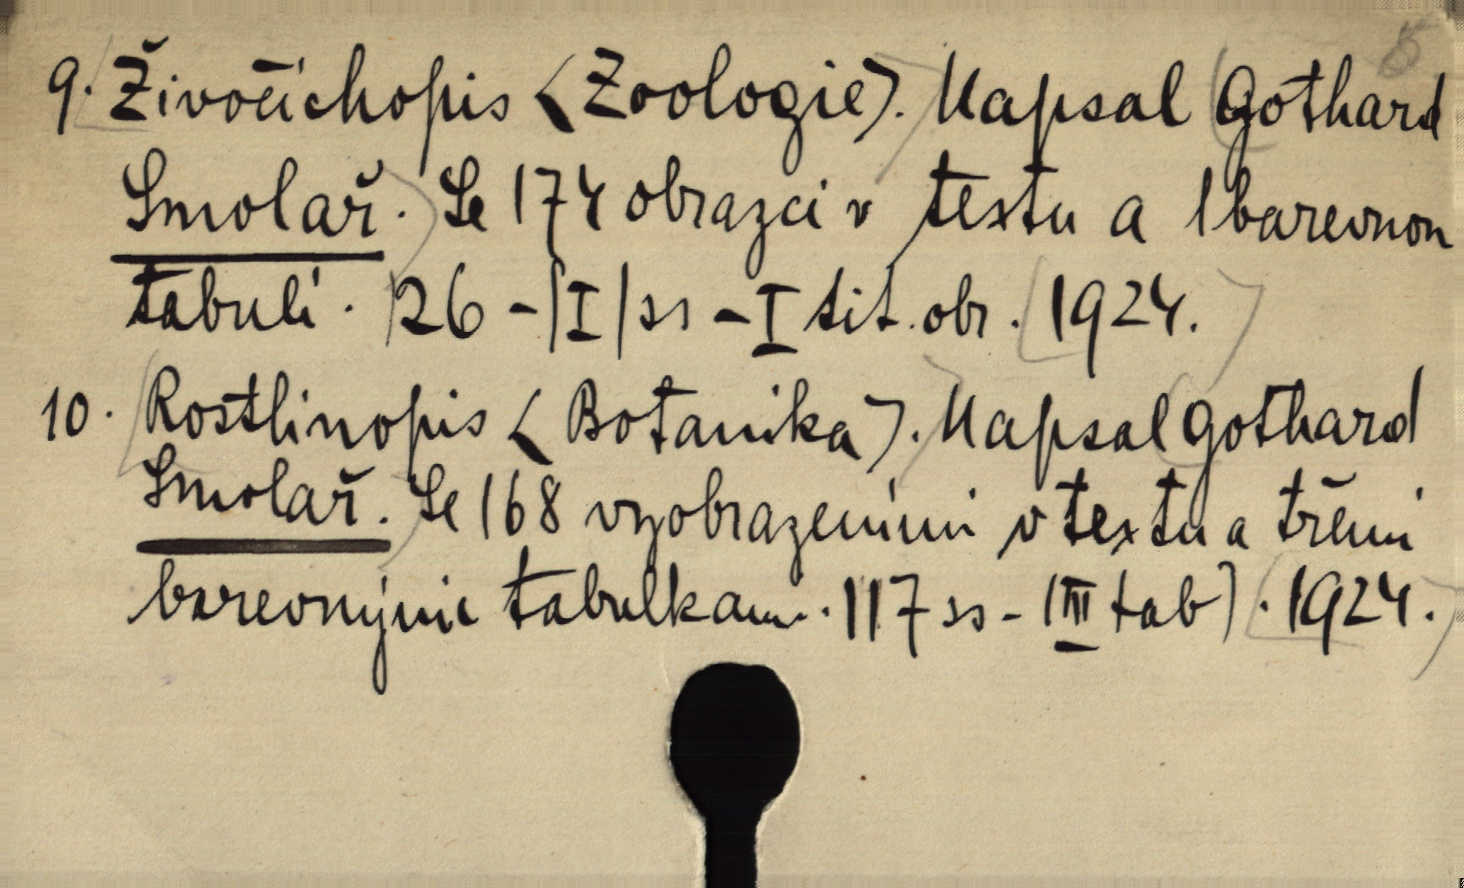 5
9. Živočichopis (Zoologie). Napsal Gothard
Smolař. Se 174 obrazci v textu a 1 barevnou
tabulí. 126 - |I| ss - I tit. obr. 1924.
10. Rostlinopis (Botanika). Napsal Gothard
Smolař. Se 168 vyobrazeními v textu a třemi
barevnými tabulkami. 117 ss - (III tab). 1924.